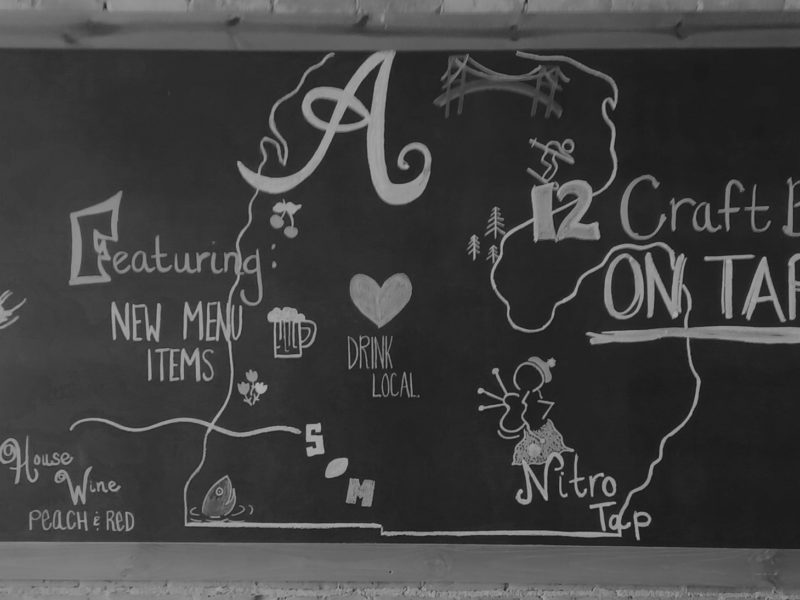 A
Featuring:
NEW MENU
ITEMS
12 Craft
ON TAP
DRINK
LOCAL.
S
M
House
Wine
PEACH & RED
Nitro
Tap